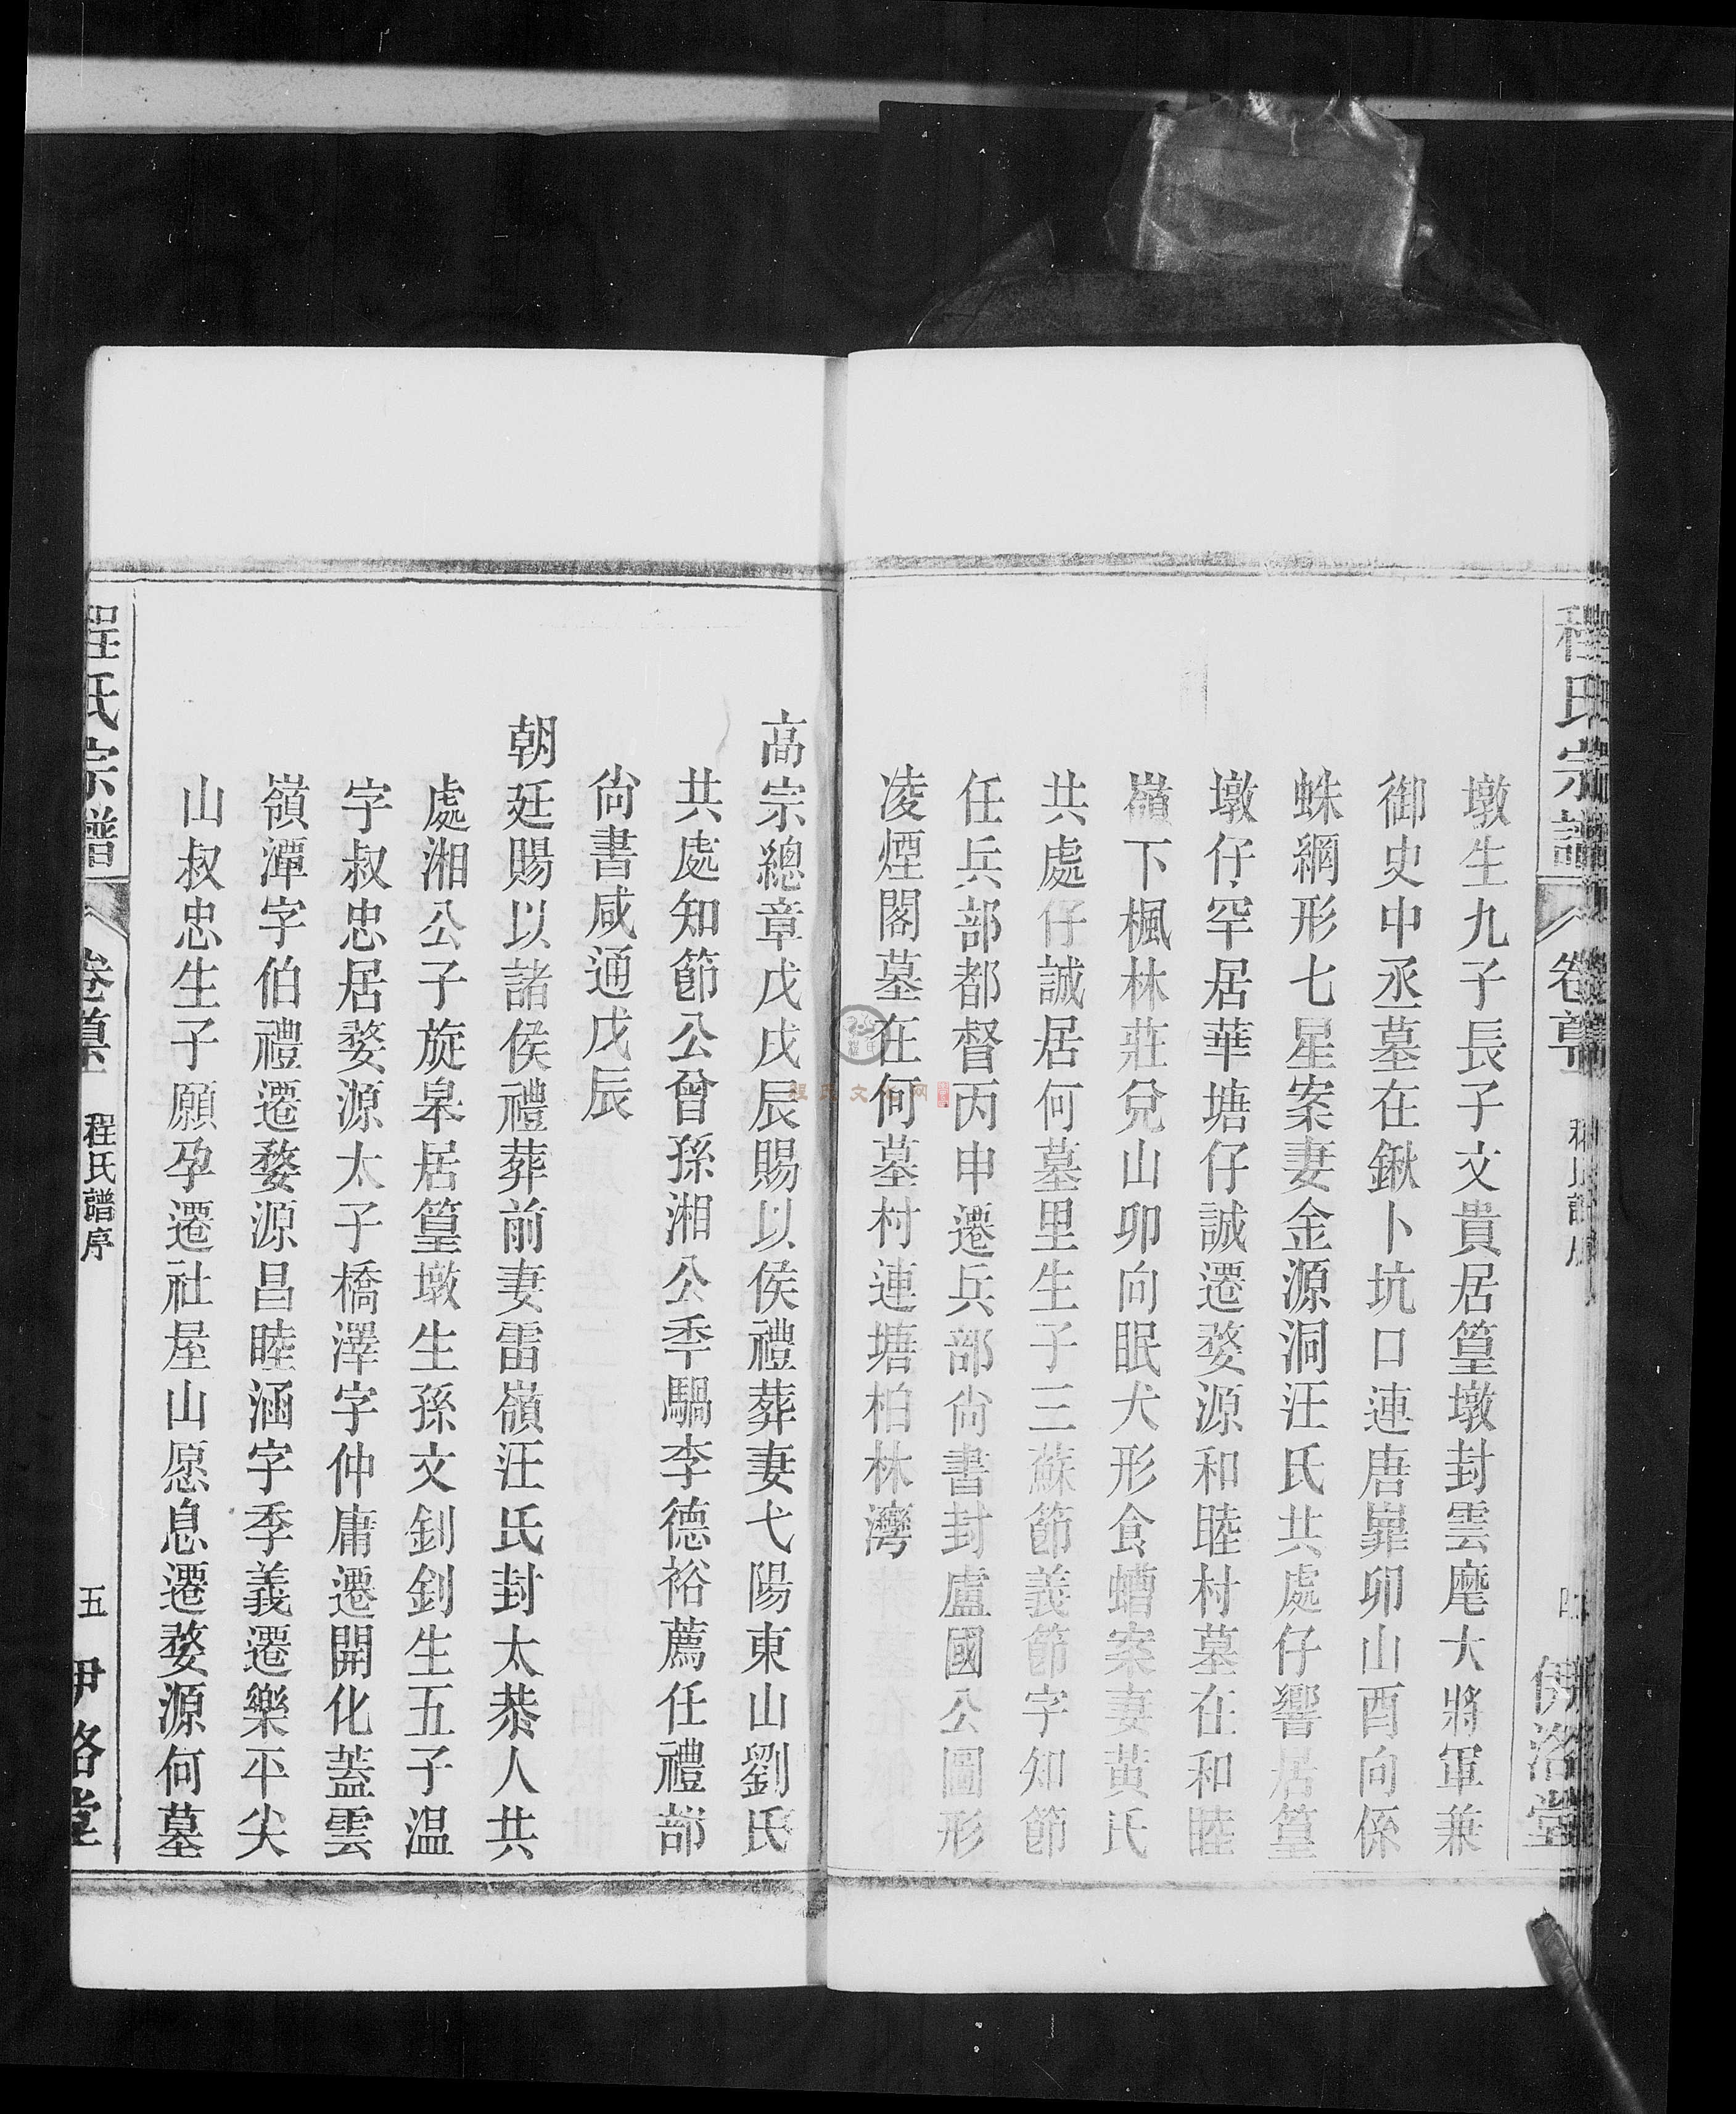 程氏宗譜
卷首
伊洛堂
墩生九子長子文貴居篁墩封雲麾大將軍兼
御史中丞墓在鍬卜坑口連唐𡹐卯山酉向係
蛛網形七星案妻金源洞汪氏共處仔響居篁
墩仔罕居華塘仔誠遷婺源和睦村墓在和睦
嶺下楓林莊兌山卯向眠犬形食螬案妻黃氏
共處仔誠居何墓里生子三蘇節義節字知節
任兵部都督丙申遷兵部尙書封盧國公圖形
凌煙閣墓在何墓村連塘柏林灣
高宗總章戊戌辰賜以侯禮葬妻弋陽東山劉氏
共處知節公曾孫湘公季騧李德裕薦任禮部
尙書咸通戊辰
朝廷賜以諸侯禮葬前妻雷嶺汪氏封太恭人共
處湘公子旋皋居篁墩生孫文釗釗生五子温
字叔忠居婺源太子橋澤字仲庸遷開化蓋雲
嶺潭字伯禮遷婺源昌睦涵字季義遷樂平尖
山叔忠生子願孕遷社屋山愿息遷婺源何墓
程氏宗譜
卷首
程氏譜序
五
伊洛堂
程氏文化网